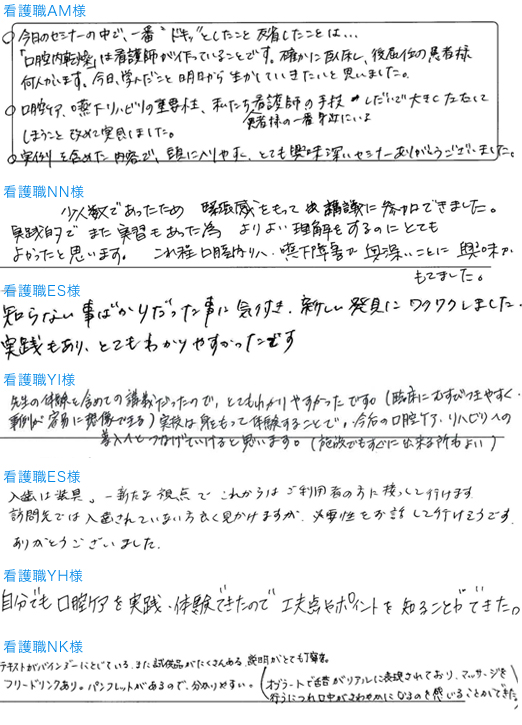 看護職AM様
○今日のセミナーの中で、一番"ドキッ"としたこと 反省したことは…
「口腔内乾燥」は看護師が作っていることです。確かに臥床し、後屈位の患者様
何人かいます。今日、学んだこと 明日から 生かしていきたいと思いました。
○口腔ケア、嚥下リハビリの重要性、私たち看護師の手技 しだいで大きく左右して
患者様の一番身近にいる
しまうこと 改めて実感しました。
○実例を含めた内容で、頭に入りやすく、とても興味深いセミナーありがとうございました。
看護職NN様
少人数であったため 緊張感をもって 講義に参加できました。
実践的で また 実習もあった為 よりよい理解をするのにとても
よかったと思います。 これ程 口腔内リハ、嚥下障害が 奥深いことに 興味が
もてました。
看護職ES様
知らない事ばかりだった事に気付き、新しい発見にワクワクしました。
実践もあり、とてもわかりやすかったです
看護職YI様
先生の体験を含めての講義だったので、とてもわかりやすかったです。(臨床にむすびつきやすく、
事例が容易に想像できる) 実技は身をもって体験することで、今后の口腔ケア、リハビリへの
導入へとつなげていけると思います。(施設でもすぐに出来る所もよい)
看護職ES様
入歯は装具。一新たな視点で これからは ご利用者の方に接して行けます
訪問先では 入歯されていない方よく見かけますが、必要性をお話して行けそうです。
ありがとうございました。
看護職YH様
自分でも口腔ケアを実践・体験できたので 工夫点やポイントを知ることができた。
看護職NK様
テキストがバインダーにとじている、また試供品がたくさんある、説明がとても丁寧。
フリードリンクあり。パンフレットがあるので、分かりやすい。(オブラートで舌苔がリアルに表現されており、マッサージを
行うにつれ口中がさわやかになるのを感じることができた)